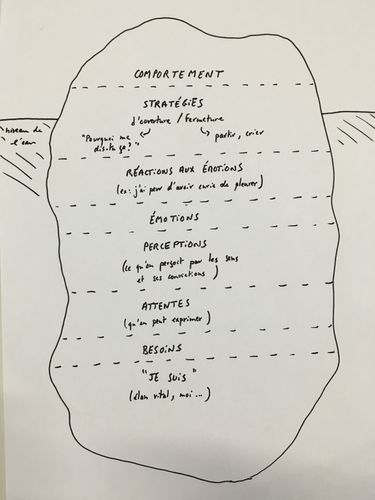 COMPORTEMENT
STRATÉGIES
d'ouverture / fermeture
niveau de
l'eau
"Pourquoi me
dis-tu ça ?"
partir, crier
RÉACTIONS AUX ÉMOTIONS
(ex : j'ai peur d'avoir envie de pleurer)
ÉMOTIONS
PERCEPTIONS
(ce qu'on perçoit par les sens
et ses convictions)
ATTENTES
(qu'on peut exprimer)
BESOINS
"JE SUIS"
(élan vital, moi...)